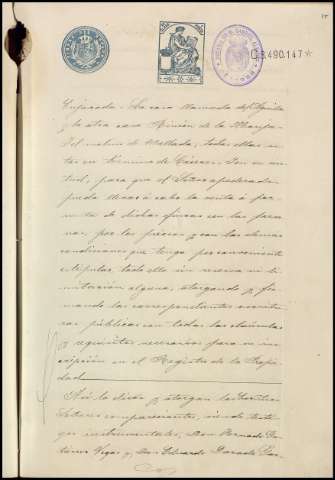 C.8.490.147*
Enfocada. La casa llamada del Aguila
y la otra casa Rincón de la Mariqui-
del molino de Mallada, todas ellas si-
tas en término de Cáceres. Con su vir-
tud, para que el Señor apoderado
pueda llevar á cabo la venta ó per-
muta de dichas fincas con las perso-
nas, por los precios y con las demas
condiciones que tenga por conveniente
estipular, todo ello sin reserva ni li-
mitación alguna, otorgando y fir-
mando las correspondientes escritu-
ras públicas con todas las cláusulas
y requisitos necesarios para su ins-
cripción en el Registro de la Propie-
dad
Así lo dicen y otorgan los
Señores comparecientes, siendo testi-
gos instrumentales, Don Fernando
Vegas y Don Eduardo